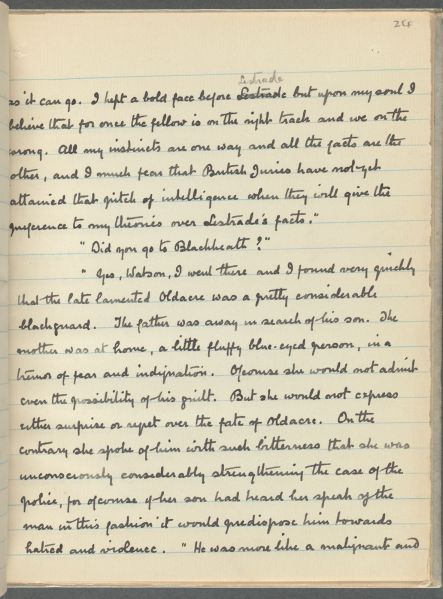 24
Lestrade
as it can go. I kept a bold face before Lestrade but upon my soul I
believe that for once the fellow is on the right track and we on the
wrong. All my instincts are one way and all the facts are the
other, and I much fear that British Juries have not yet
attained that pitch of intelligence when they will give the
preference to my theories over Lestrade's facts."
"Did you go to Blackheath?"
"Yes, Watson, I went there and I found very quickly
that the late lamented Oldacre was a pretty considerable
blackguard. The father was away in search of his son. The
mother was at home, a little fluffy blue-eyed person, in a
tremor of fear and indignation. Of course she would not admit
even the possibility of his guilt. But she would not express
either surprise or regret over the fate of Oldacre. On the
contrary she spoke of him with such bitterness that she was
unconsciously considerably strengthening the case of the
police, for of course if her son had heard her speak of the
man in this fashion it would predispose him towards
hatred and violence. "He was more like a malignant and